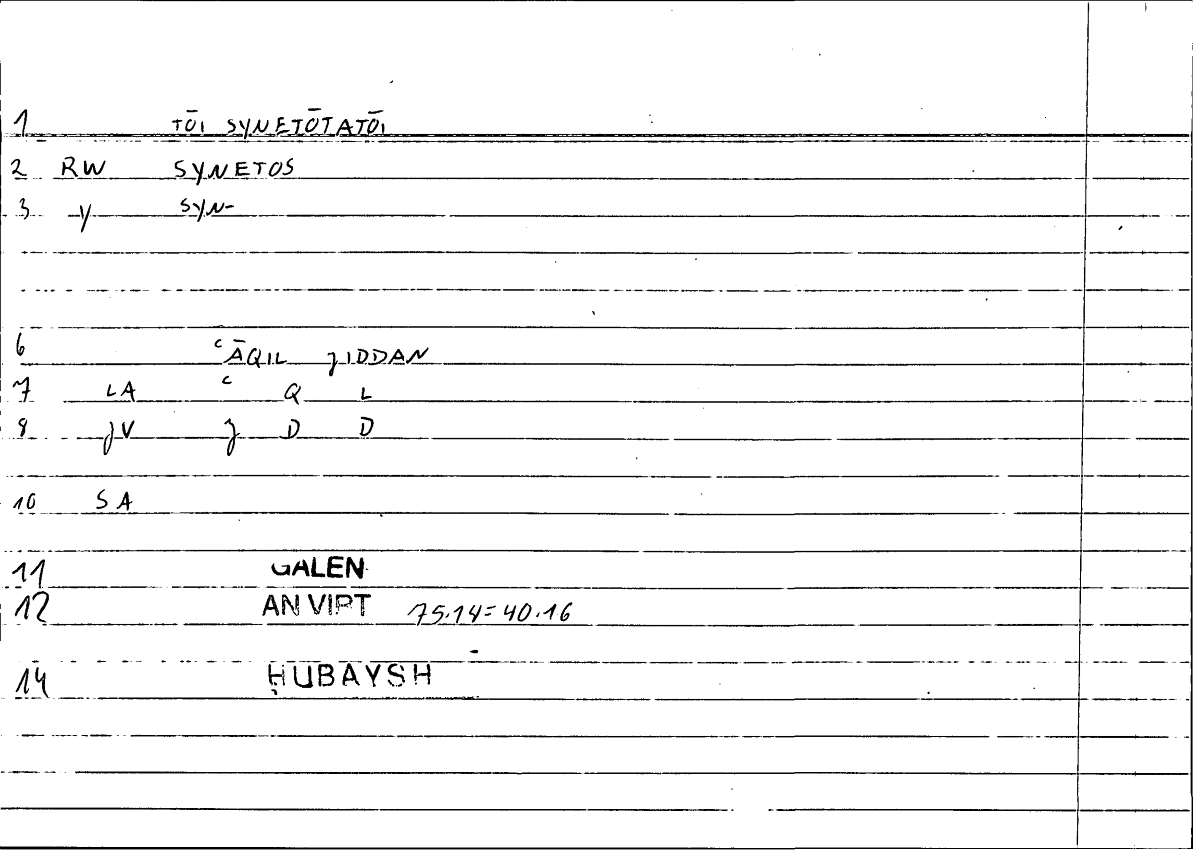 1 TŌI SYNETŌTATŌI
2 RW SYNETOS
3 y SYN-
6 ʿĀQIL JIDDAN
7 LA ʿ Q L
8 JV J D D
10 SA
11 GALEN
12 AN VIRT 75.14=40.16
14 ḤUBAYSH